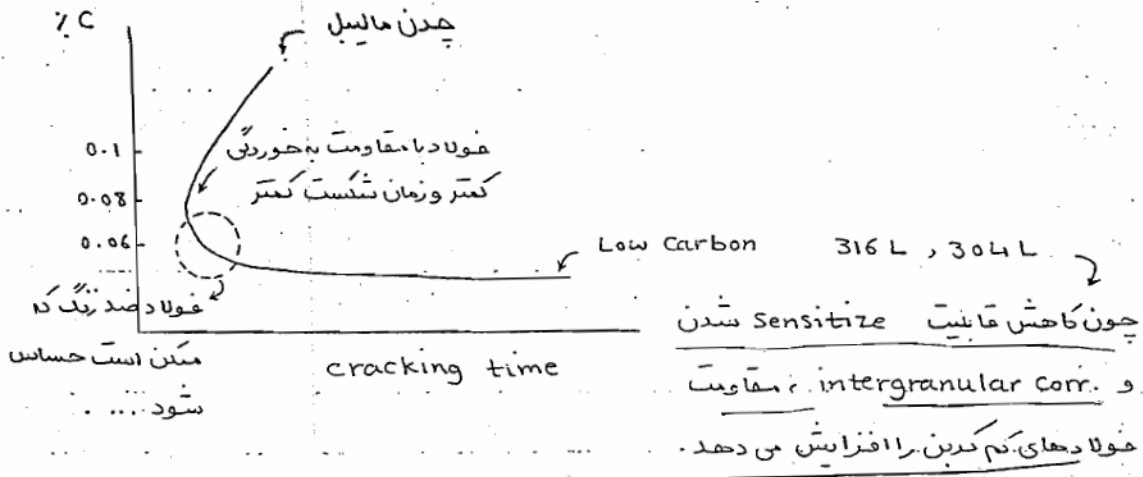 % C
چدن مالیبل
0.1
0.08
0.06
فولاد با مقاومت به خوردگی
کمتر و زمان شکست کمتر
Low Carbon 316 L , 304 L
فولاد ضد زنگ که
ممکن است حساس
شود ....
cracking time
چون کاهش قابلیت Sensitize شدن
و intergranular corr. ، مقاومت
فولادهای کم کربن را افزایش می دهد.